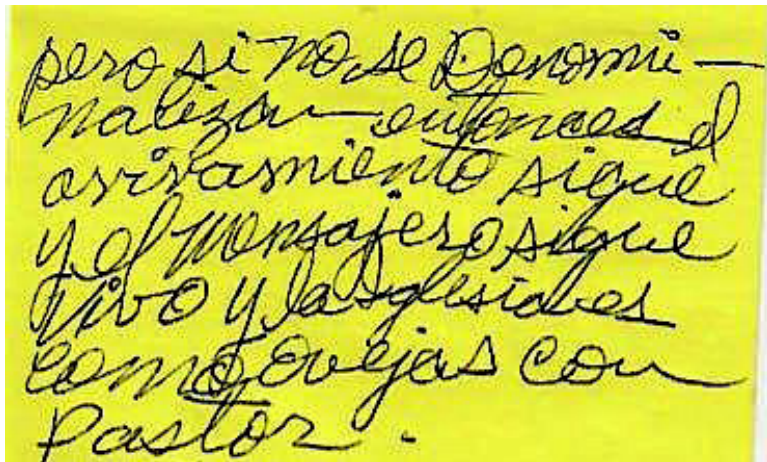 pero si no se Denomi-
nalizan entonces el
avivamiento sigue
y el mensajero sigue
vivo y la Iglesia es
como ovejas con
pastor.